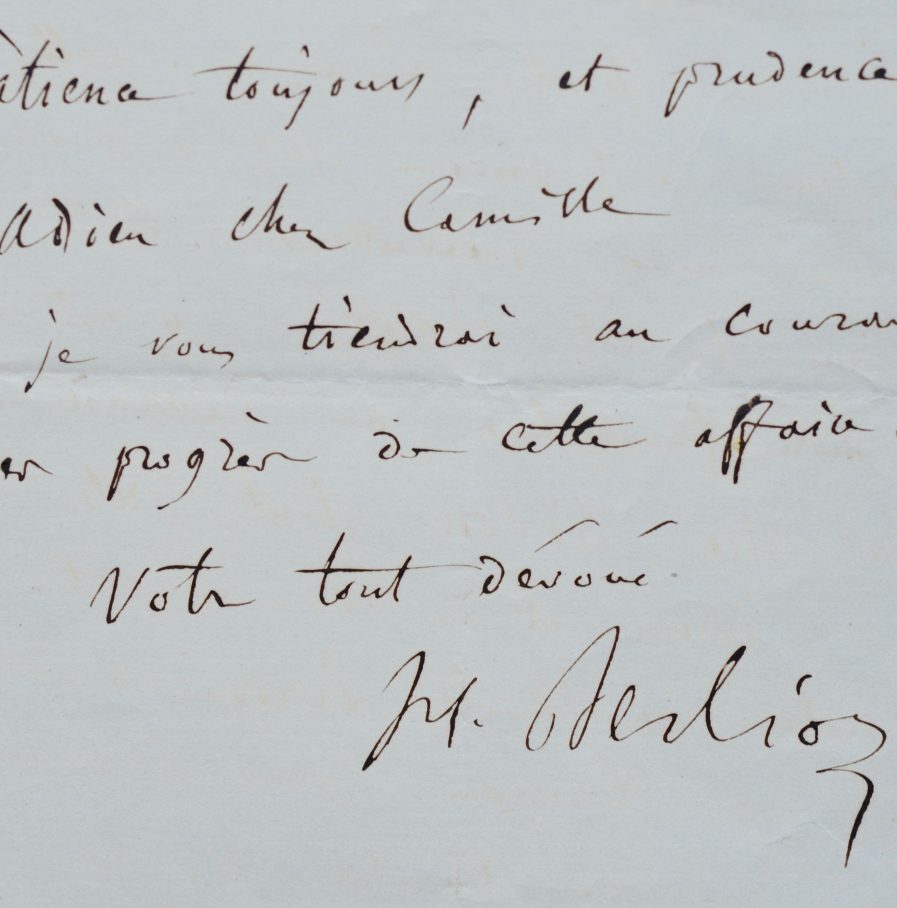 patience toujours, et prudence
Adieu cher Camille
je vous tiendrai au couran
es progrès de cette affaire.
Votre tout dévoué
H. Berlioz